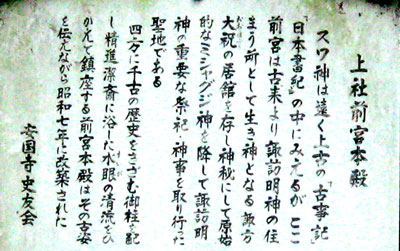 上社前宮本殿
スワ神は遠く上古の「古事記
「日本書紀」の中にみえるが ここ
前宮は古来より諏訪明神の住
まう所として生き神となる諏方
大祝の居館を存し神秘にして原始
的なミシャグジ神を降して諏訪明
神の重要な祭祀 神事を取り行った
聖地である
四方に千古の歴史をきざむ御柱を配
し精進潔斎に浴した水眼の清流をひ
かえて鎮座する前宮本殿はその古姿
を伝えながら昭和七年に改築された
安国寺史友会